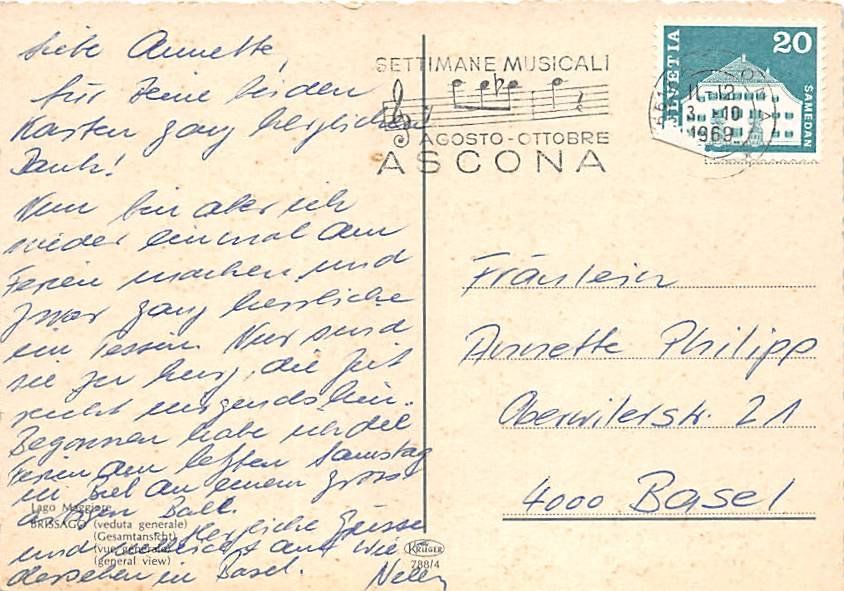 Liebe Annette,
für Deine beiden
Karten ganz herzlichen
Dank!
Nun bin aber ich
wieder einmal am
Ferien machen und
zwar ganz herrliche
im Tessin. Nur sind
sie zu kurz, die Zeit
reicht nirgends hin.
Begonnen habe ich die
Ferien am letzten Samstag
in Biel an einem gross-
Ball.
Herzliche Grüsse
und vielleicht auf Wie
dersehen in Basel. Nelly
Lago Maggiore
BRISSAGO (veduta generale)
(Gesamtansicht)
(vue generale)
(general view)
KRÜGER
788/4
SETTIMANE MUSICALI
AGOSTO-OTTOBRE
ASCONA
11-12
3.10
1969
HELVETIA
20
SAMEDAN
Fräulein
Annette Philipp
Oberwilerstr. 21
4000 Basel